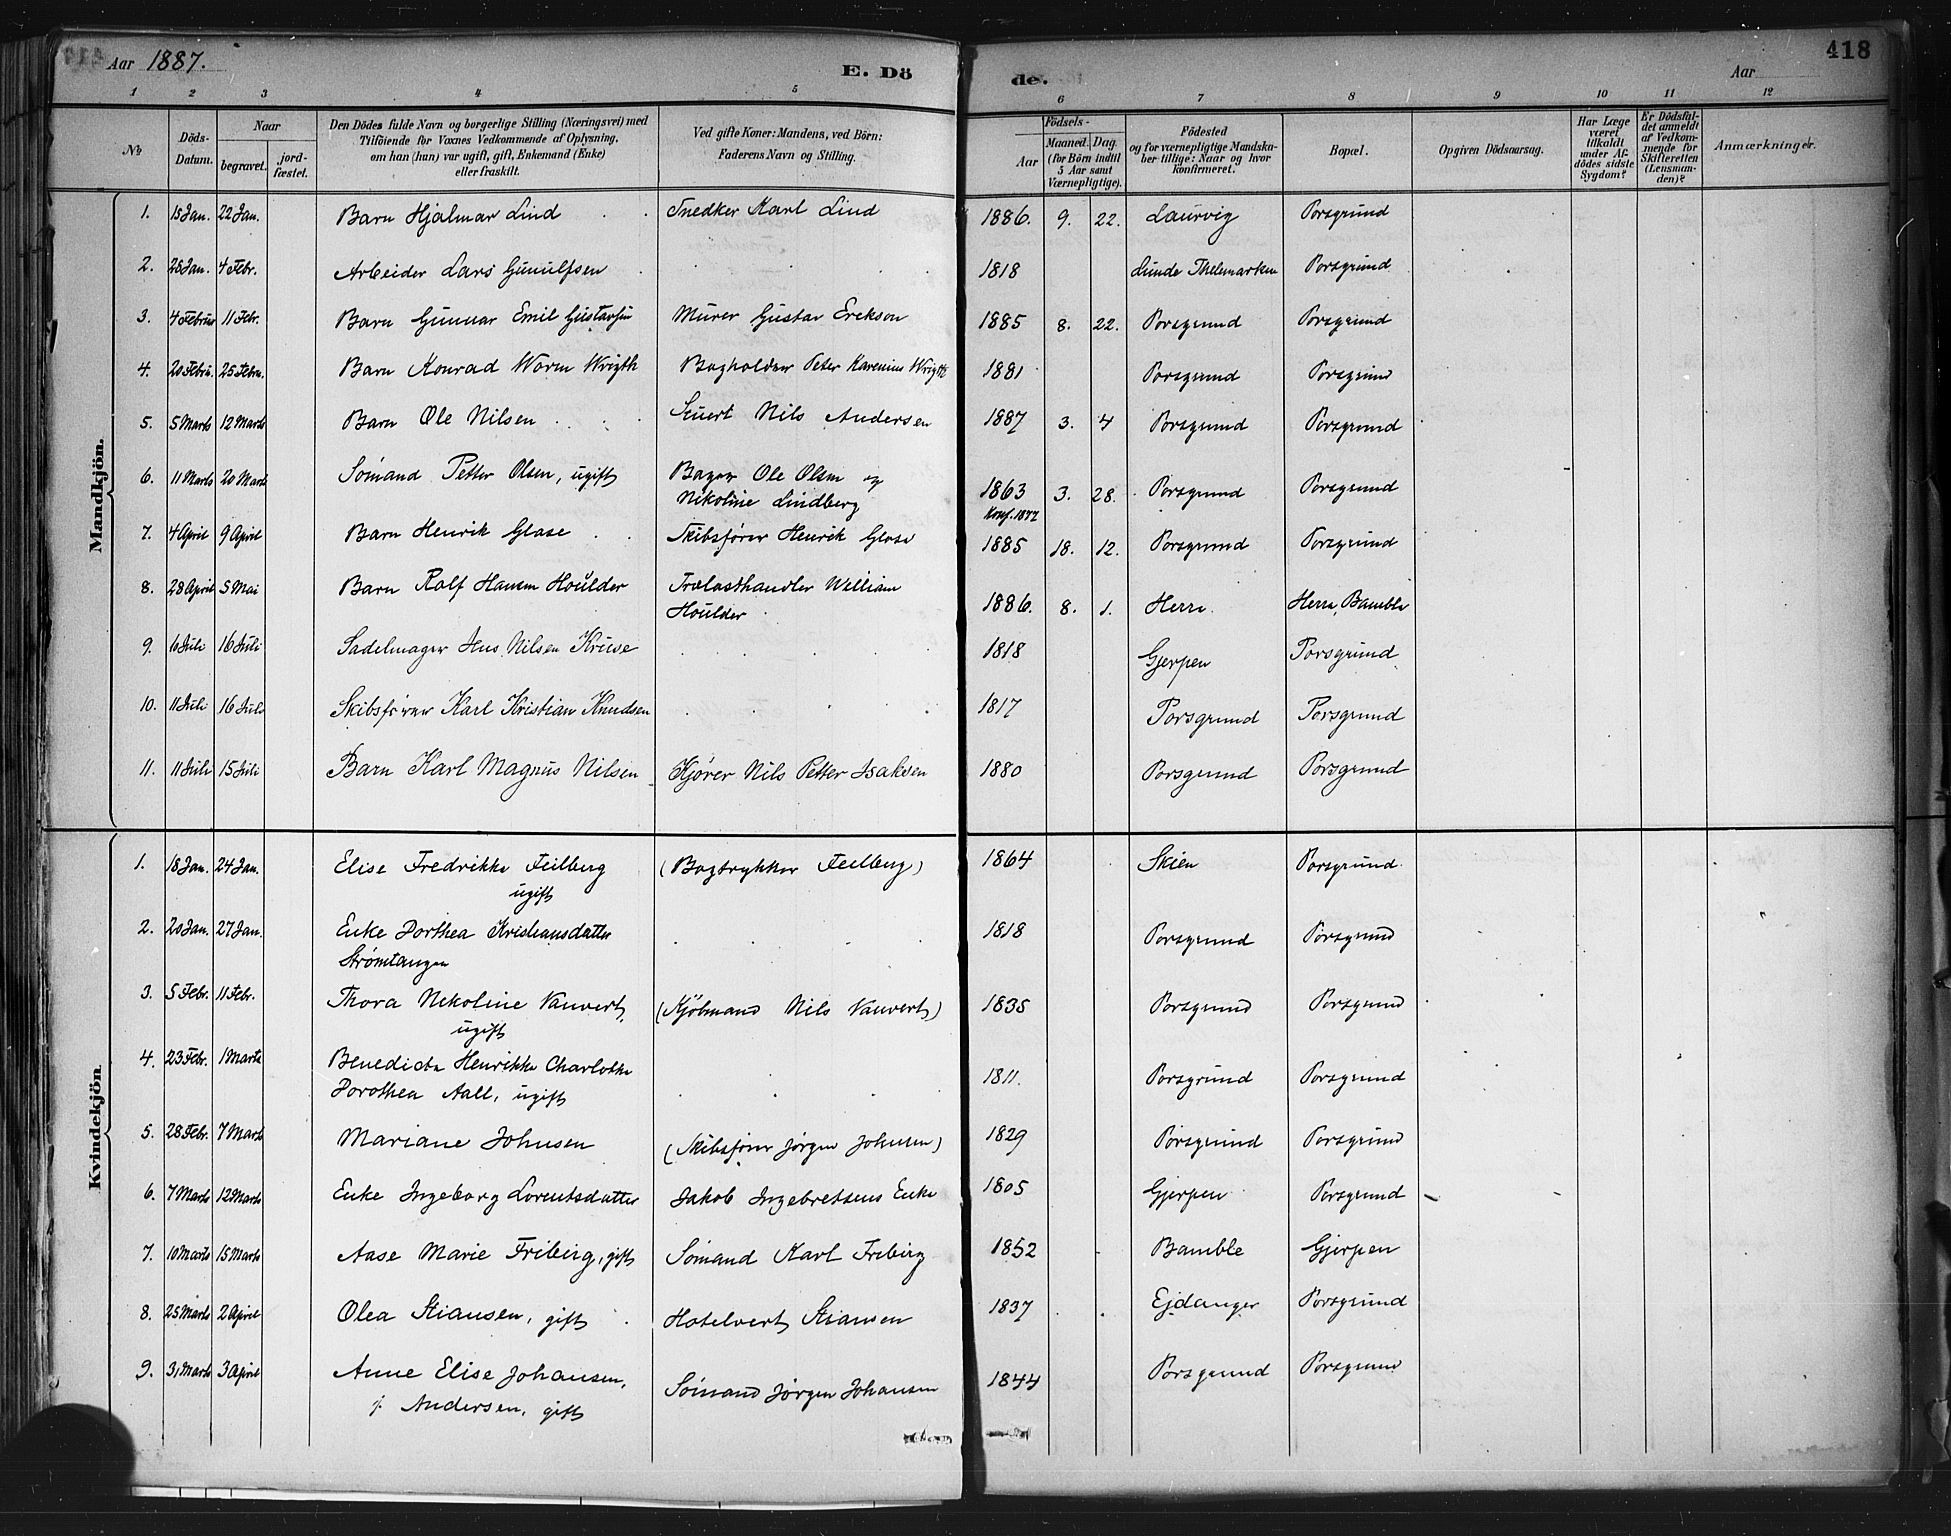 Aar 1887.
E. Dö
de.
Aar
418
1 2 3 4 5 6 7 8 9 10 11 12
No
Döds-Datum.
Naar
begravet.
jord-fæstet.
Den Dödes fulde Navn og borgerlige Stilling (Næringsvei) med
Tilföiende for Voxnes Vedkommende af Oplysning,
om han (hun) var ugift, gift, Enkemand (Enke)
eller fraskilt.
Ved gifte Koner: Mandens, ved Börn:
Faderens Navn og Stilling.
Födsels-
Aar
Maaned. Dag.
(for Börn indtil
5 Aar samt
Værnepligtige).
Födested
og for værnepligtige Mandska-
ber tillige: Naar og hvor
konfirmeret.
Bopæl.
Opgiven Dödsaarsag.
Har Læge
været
tilkaldt
under Af-
dödes sidste
Sygdom?
Er Dödsfal-
det anmeldt
af Vedkom-
mende for
Skifteretten
(Lensman-
den)?
Anmærkninger.
Mandkjön.
1. 15 Jan. 22 Jan. Barn Hjalmar Lind Snedker Karl Lind 1886. 9. 22. Laurvig Porsgrund
2. 28 Jan. 4 Febr. Arbeider Lars Gunulfsen 1818 Lunde Thelemarken Porsgrund
3. 4 Februar 11 Febr. Barn Gunnar Emil Gustavsen Murer Gustav Erekson 1885 8. 22. Porsgrund Porsgrund
4. 20 Febru. 25 Febru. Barn Konrad Worm Wrigth Bogholder Peter Karenius Wrigth 1881 Porsgrund Porsgrund
5. 5 Marts 12 Marts Barn Ole Nilsen Nils Andersen 1887 3. 4 Porsgrund Porsgrund
6. 11 Marts 20 Marts Sømand Petter Olsen, ugift Bager Ole Olsen og
Nikoline Lindberg 1863 3. 28. Porsgrund Porsgrund
Konf. 1877
7. 4 April 9 April Barn Henrik Glase Skibsfører Henrik Glase 1885 18. 12. Porsgrund Porsgrund
8. 28 April 5 Mai Barn Rolf Hansen Houlder Trælasthandler William
Houlder 1886. 8. 1. Herre Herre, Bamble
9. 6 Juli 16 Juli Sadelmager Jens Nilsen Kruse 1818 Gjerpen Porsgrund
10. 11 Juli 16 Juli Skibsfører Karl Kristian Knudsen 1817 Porsgrund Porsgrund
11. 11 Juli 15 Juli Barn Karl Magnus Nilsen Kjører Nils Petter Isaksen 1880 Porsgrund Porsgrund
Kvindekjön.
1. 18 Jan. 24 Jan. Elise Fredrikke Feilberg (Bogtrykker Feilberg) 1864 Skien Porsgrund
ugift
2. 20 Jan. 27 Jan. Enke Dorthea Kristiansdatter 1818 Porsgrund Porsgrund
Strømtangen
3. 5 Febr. 11 Febr. Thora Nikoline Vauvert, (Kjøbmand Nils Vauvert) 1835 Porsgrund Porsgrund
ugift
4. 23 Febr. 1 Marts Benedicta Henrikke Charlotte
Dorothea Aall, ugift 1811. Porsgrund Porsgrund
5. 28 Febr. 7 Marts Mariane Johnsen (Skibsfører Jørgen Johnsen) 1829 Porsgrund Porsgrund
6. 7 Marts 12 Marts Enke Ingeborg Lorentsdatter Jakob Ingebretsens Enke 1805 Gjerpen Porsgrund
7. 10 Marts 15 Marts Aase Marie Friberg, gift Sømand Karl Friberg 1852 Bamble Gjerpen
8. 25 Marts 2 April Olea Stiansen, gift Hotelvert Stiansen 1837 Ejdanger Porsgrund
9. 31 Marts 3 April Anne Elise Johansen, Sømand Jørgen Johansen 1844 Porsgrund Porsgrund
f. Andersen, gift